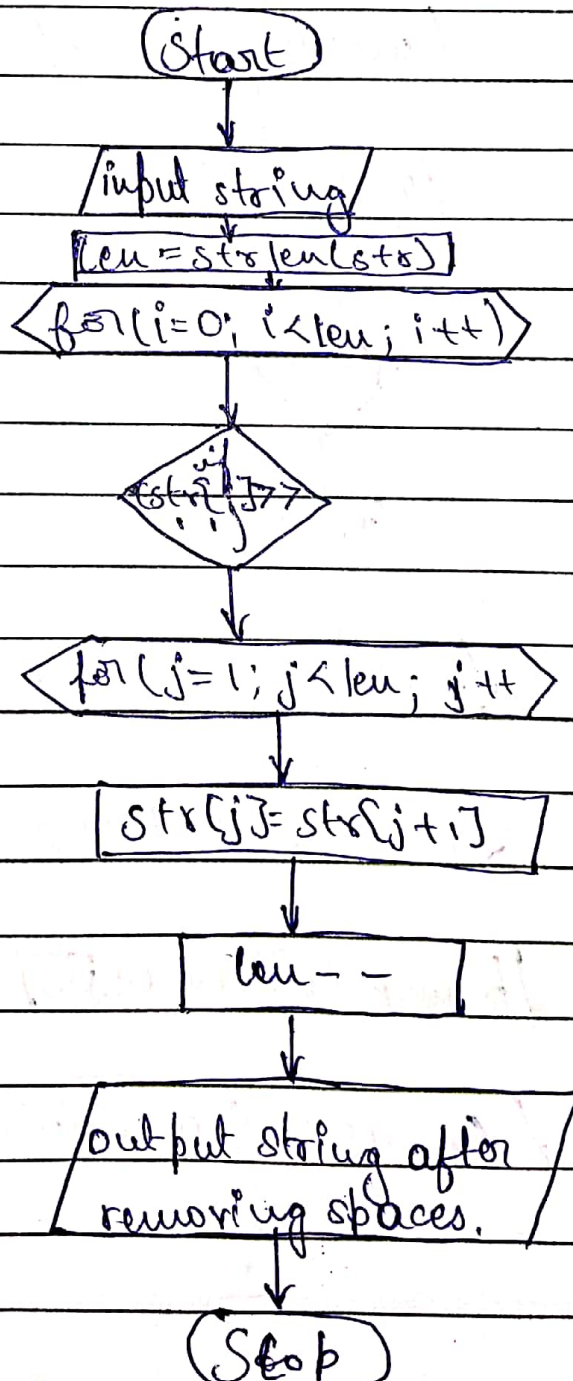 Start
input string
len = strlen(str)
for(i=0; i<len; i++)
if
(str[i]
for(j=1; j<len; j++
str[j]=str[j+1]
len--
output string after
removing spaces.
Stop